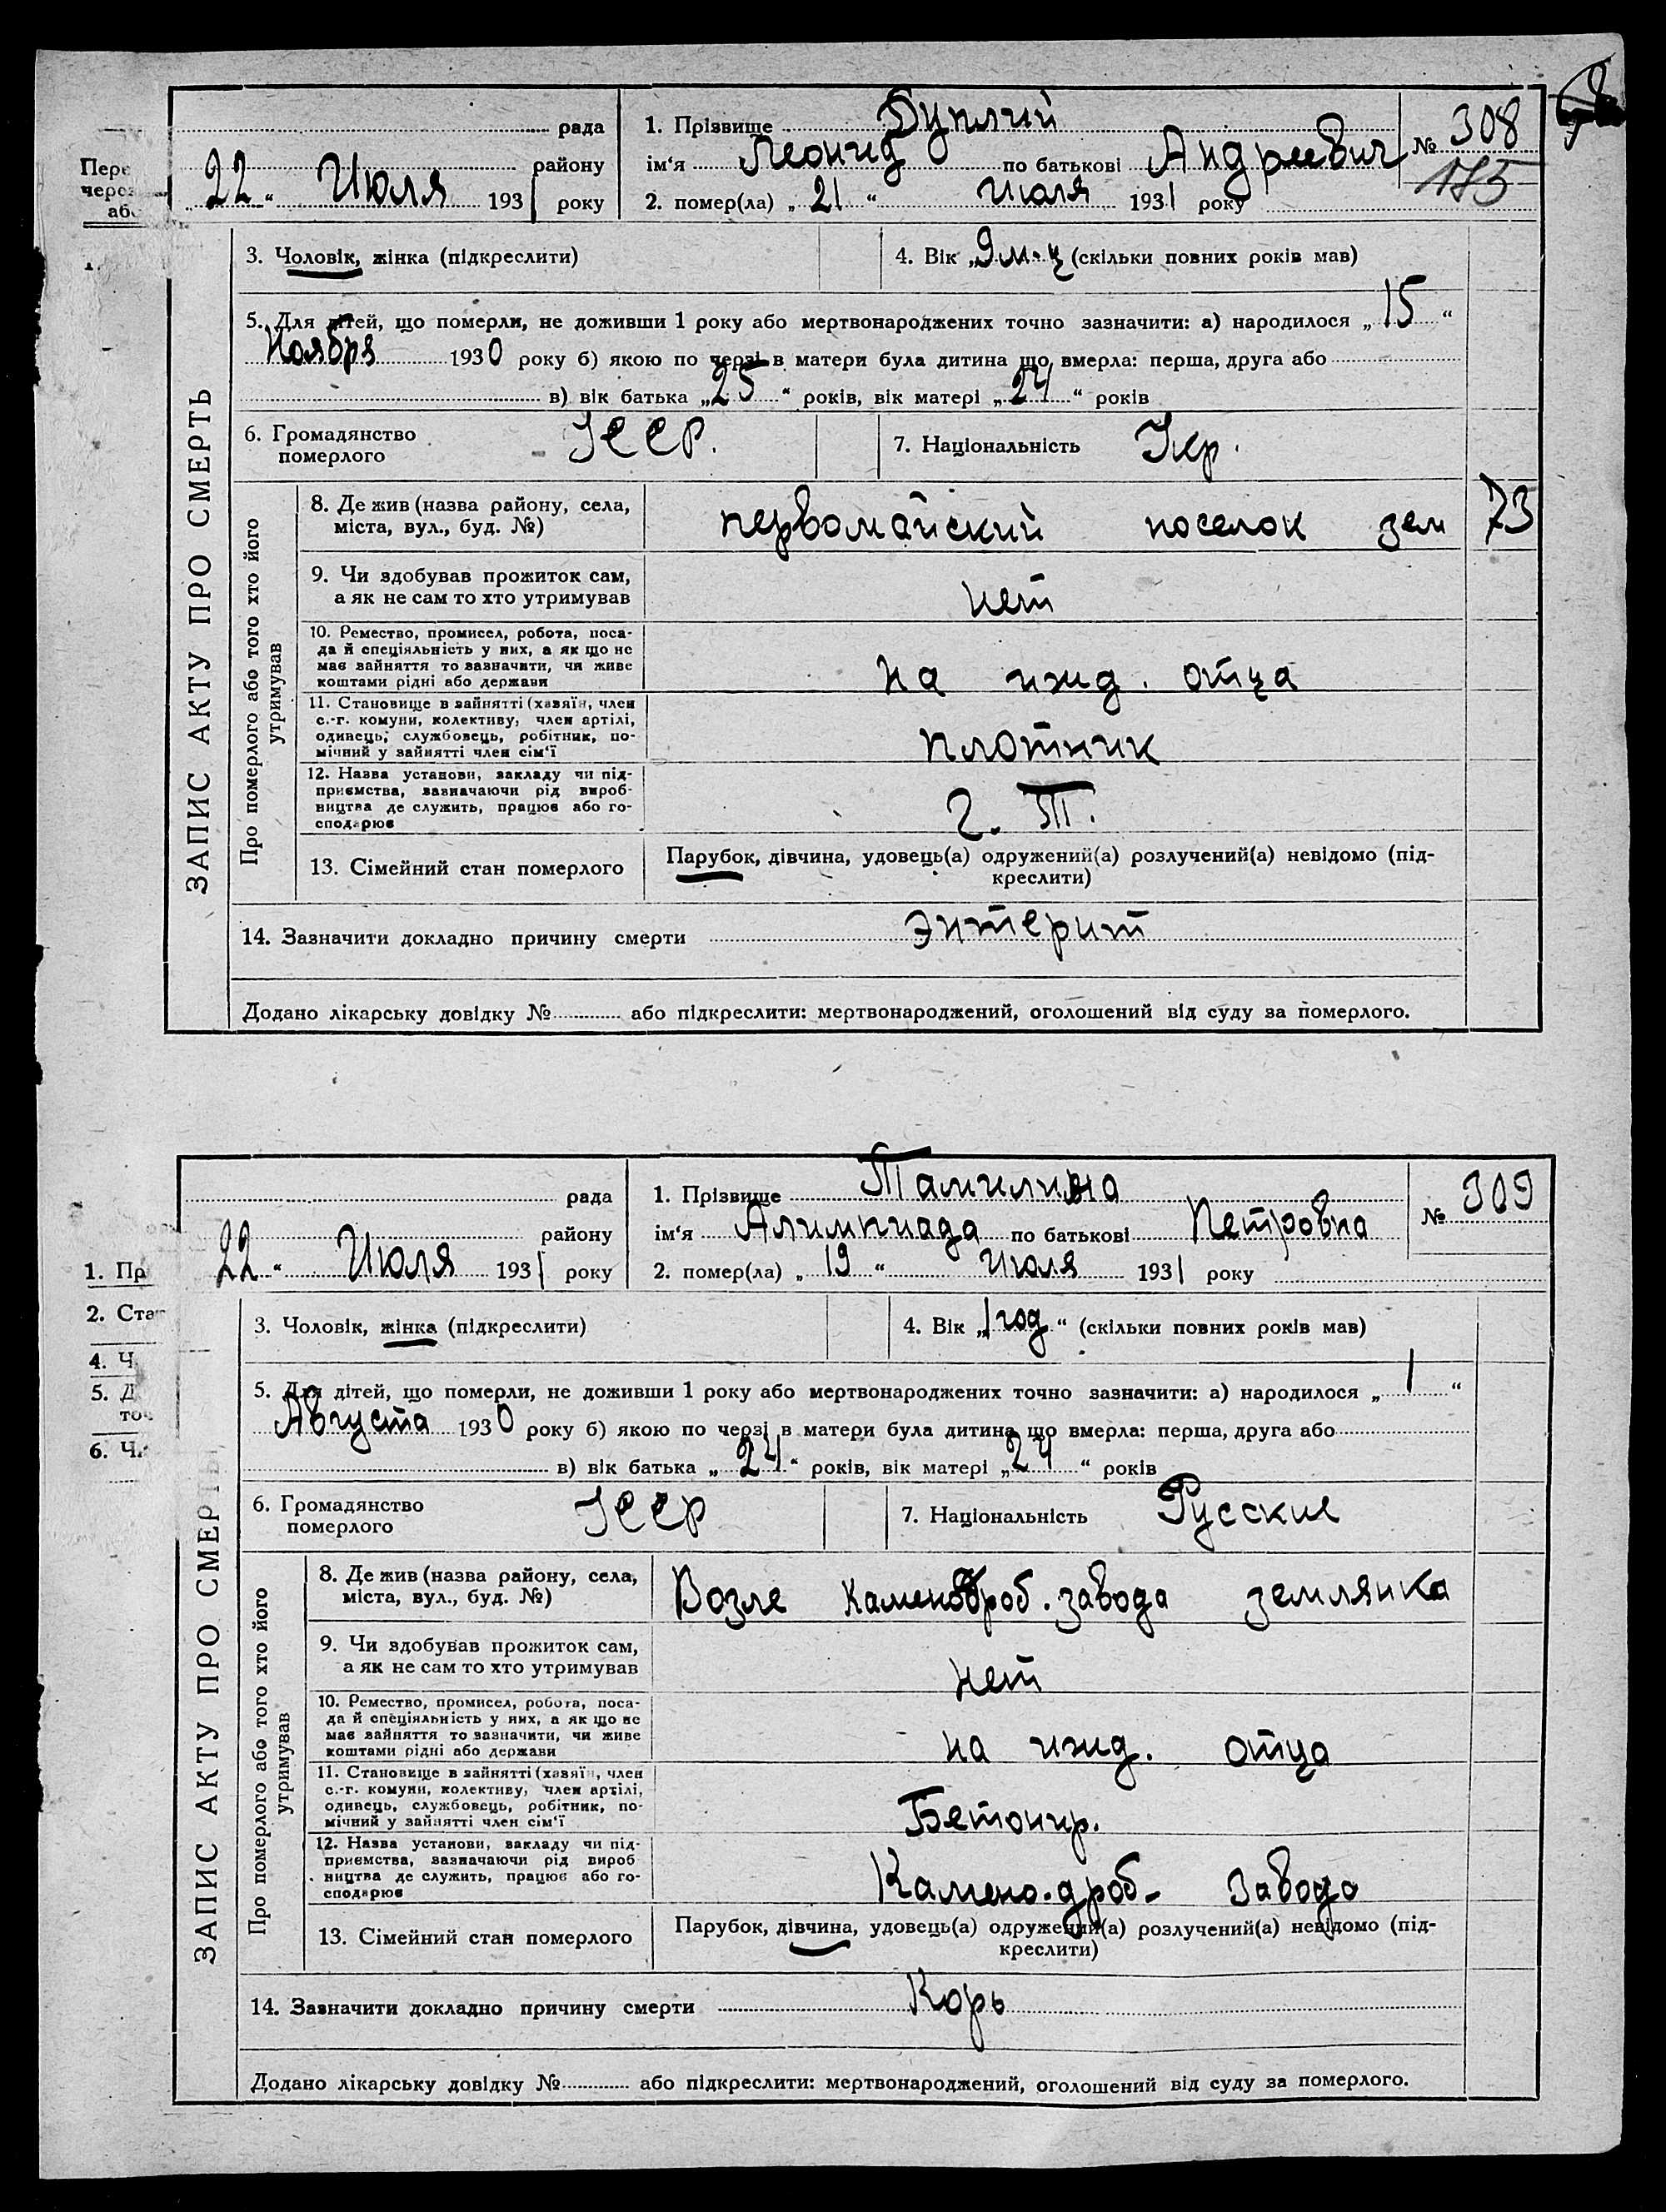 рада
1. Прізвище Дуплий
№ 308
Пере
районy
ім‘я Леонид по батькові Андреевич
175
через
"22" Июля 1931 року
2. помер(ла) „21“ июля 1931 року
або
1.
3. Чоловік, жінка (підкреслити)
4. Вік „9 м-ц (скільки повних років мав)
5. Для дітей, що померли, не доживши 1 року або мертвонароджених точно зазначити: а) народилося „15“
Ноября 1930 року б) якою по черзі в матери була дитина що вмерла: перша, друга або
в) вік батька „25“ років, вік матері „24“ років
6. Громадянство
померлого
УССР.
7. Національність Укр.
ЗАПИС АКТУ ПРО СМЕРТЬ
Про померлого або того хто його
утримував
8. Де жив (назва району, села,
міста, вул., буд. №)
первомайский поселок зем 73
9. Чи здобував прожиток сам,
а як не сам то хто утримував
нет
10. Ремество, промисел, робота, поса-
да й спеціяльність у них, а як що не
має зайняття то зазначити, чи живе
коштами рідні або держави
на ижд. отца
11. Становище в зайнятті (хазяїн, член
с.-г. комуни, колективу, член артілі,
одинець, службовець, робітник, по-
мічний у зайнятті член сім‘ї
плотник
12. Назва установи, закладу чи під-
приємства, зазначаючи рід вироб-
ництва де служить, працює або го-
сподарює
Г. Т.
13. Сімейний стан померлого
Парубок, дівчина, удовець(а) одружений(а) розлучений(а) невідомо (під-
креслити)
14. Зазначити докладно причину смерти энтерит
Додано лікарську довідку № або підкреслити: мертвонароджений, оголошений від суду за померлого.
рада
1. Прізвище Тамилина
№ 309
району
ім‘я Алимпиада по батькові Петровна
1. Пр
22 " Июля 1931 року
2. помер(ла) „19“ Июля 1931 року
2. Ста
3. Чоловік, жінка (підкреслити)
4. Вік „1 год“ (скільки повних років мав)
4. Ч
5. Д
точ
6. Ч
5. Для дітей, що померли, не доживши 1 року або мертвонароджених точно зазначити: а) народилося „1“
Августа 1930 року б) якою по черзі в матери була дитина що вмерла: перша, друга або
в) вік батька „24“ років, вік матері „24“ років
6. Громадянство
померлого
УССР
7. Національність Русские
ЗАПИС АКТУ ПРО СМЕРТЬ
Про померлого або того хто його
утримував
8. Де жив (назва району, села,
міста, вул., буд. №)
Возле каменодроб. завода землянка
9. Чи здобував прожиток сам,
а як не сам то хто утримував
нет
10. Ремество, промисел, робота, поса-
да й спеціяльність у них, а як що не
має зайняття то зазначити, чи живе
коштами рідні або держави
на ижд. отца
11. Становище в зайнятті (хазяїн, член
с.-г. комуни, колективу, член артілі,
одинець, службовець, робітник, по-
мічний у зайнятті член сім‘ї
Бетонир.
12. Назва установи, закладу чи під-
приємства, зазначаючи рід вироб
ництва де служить, працює або го-
сподарює
Камено-дроб- завода
13. Сімейний стан померлого
Парубок, дівчина, удовець(а) одружений(а) розлучений(а) невідомо (під-
креслити)
14. Зазначити докладно причину смерти Корь
Додано лікарську довідку № або підкреслити: мертвонароджений, оголошений від суду за померлого.